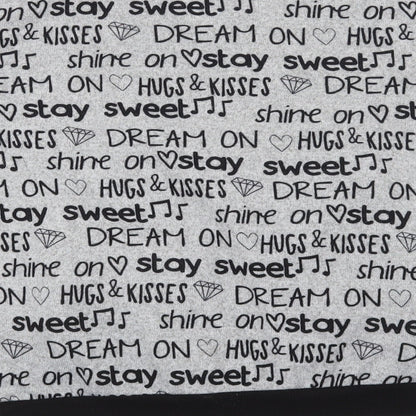 on shine on stay
HUGS & KISSES DREAM ON HUGS
DREAM ON HUGS & KISSES
stay sweet shine on
KISSES DREAM ON HUGS & KISSES
shine on stay sweet
DREAM ON HUGS & KISSES DREAM
tay sweet shine on stay
SSES DREAM ON HUGS & KISSES
shine on stay sweet shine
ON HUGS & KISSES DREAM ON
sweet shine on stay sweet
DREAM ON HUGS & KISSES
shine on stay sweet shine on
HUGS & KISSES